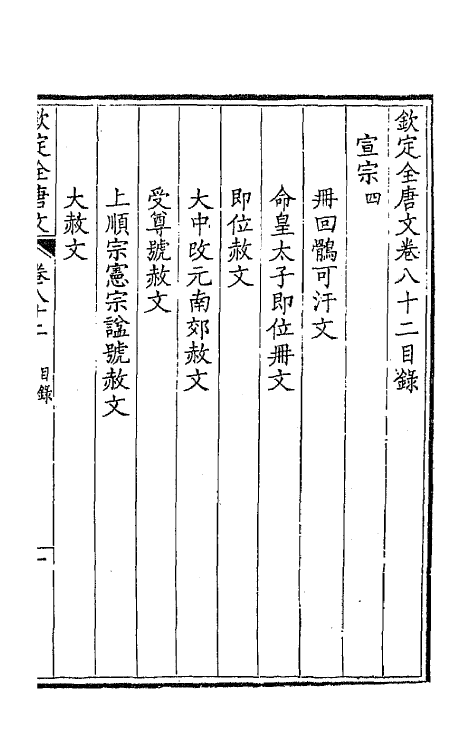 欽定全唐文卷八十二目錄
宣宗四
冊回鶻可汗文
命皇太子即位冊文
即位赦文
大中改元南郊赦文
受尊號赦文
上順宗憲宗諡號赦文
大赦文
欽定全唐文 卷八十二 目錄 一